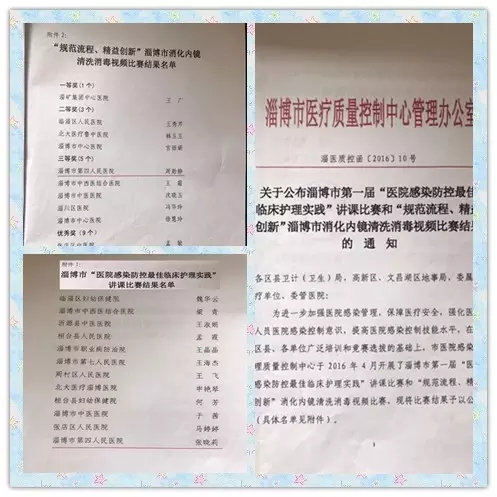 附件2：
“规范流程、精益创新”淄博市消化内镜
清洗消毒视频比赛结果名单
一等奖(1个)
淄矿集团中心医院 王广
二等奖(3个)
临淄区人民医院
北大医疗鲁中医院 韩玉玉
淄博市中心医院
三等奖(5个)
淄博市第四人民医院
淄博市中西医结合医院 王
淄博市中医医院 沈晓玉
淄川区医院 冯华玲
淄博市中心医院 徐薇玲
优秀奖(9个)
淄博市“医院感染防控最佳临床护理实践”
讲课比赛结果名单
临淄区妇幼保健院 魏华云
淄博市中西医结合医院 梁青
沂源县中医医院 王淑娟
桓台县人民医院 孟霞
淄博市职业病防治院 王晶晶
淄博市第七人民医院 王海杰
周村区人民医院 王飞
北大医疗淄博医院 申艳琴
桓台县妇幼保健院 何芳
淄博市中医医院 于茜
张店区人民医院 马婷婷
淄博市第四人民医院 张晓莉
淄博市医疗质量控制中心管理办公室
淄医质控函〔2016〕10号
关于公布淄博市第一届“医院感染防控最佳
临床护理实践”讲课比赛和“规范流程、精益
创新”淄博市消化内镜清洗消毒视频比赛结果
的通知
各区县卫计(卫生)局，高新区、文昌湖区地事局，委属
疗单位、委管医院：
为进一步加强医院感染管理，保障医疗安全，强化医
人员医院感染控制意识，提高医院感染控制技能水平，在
区县、各单位广泛培训和竞赛选拔的基础上，市医院感染
理质量控制中心于2016年4月开展了淄博市第一届“医
感染防控最佳临床护理实践”讲课比赛和“规范流程、精
创新”消化内镜清洗消毒视频比赛，现将比赛结果予以公
(具体名单见附件)。
1